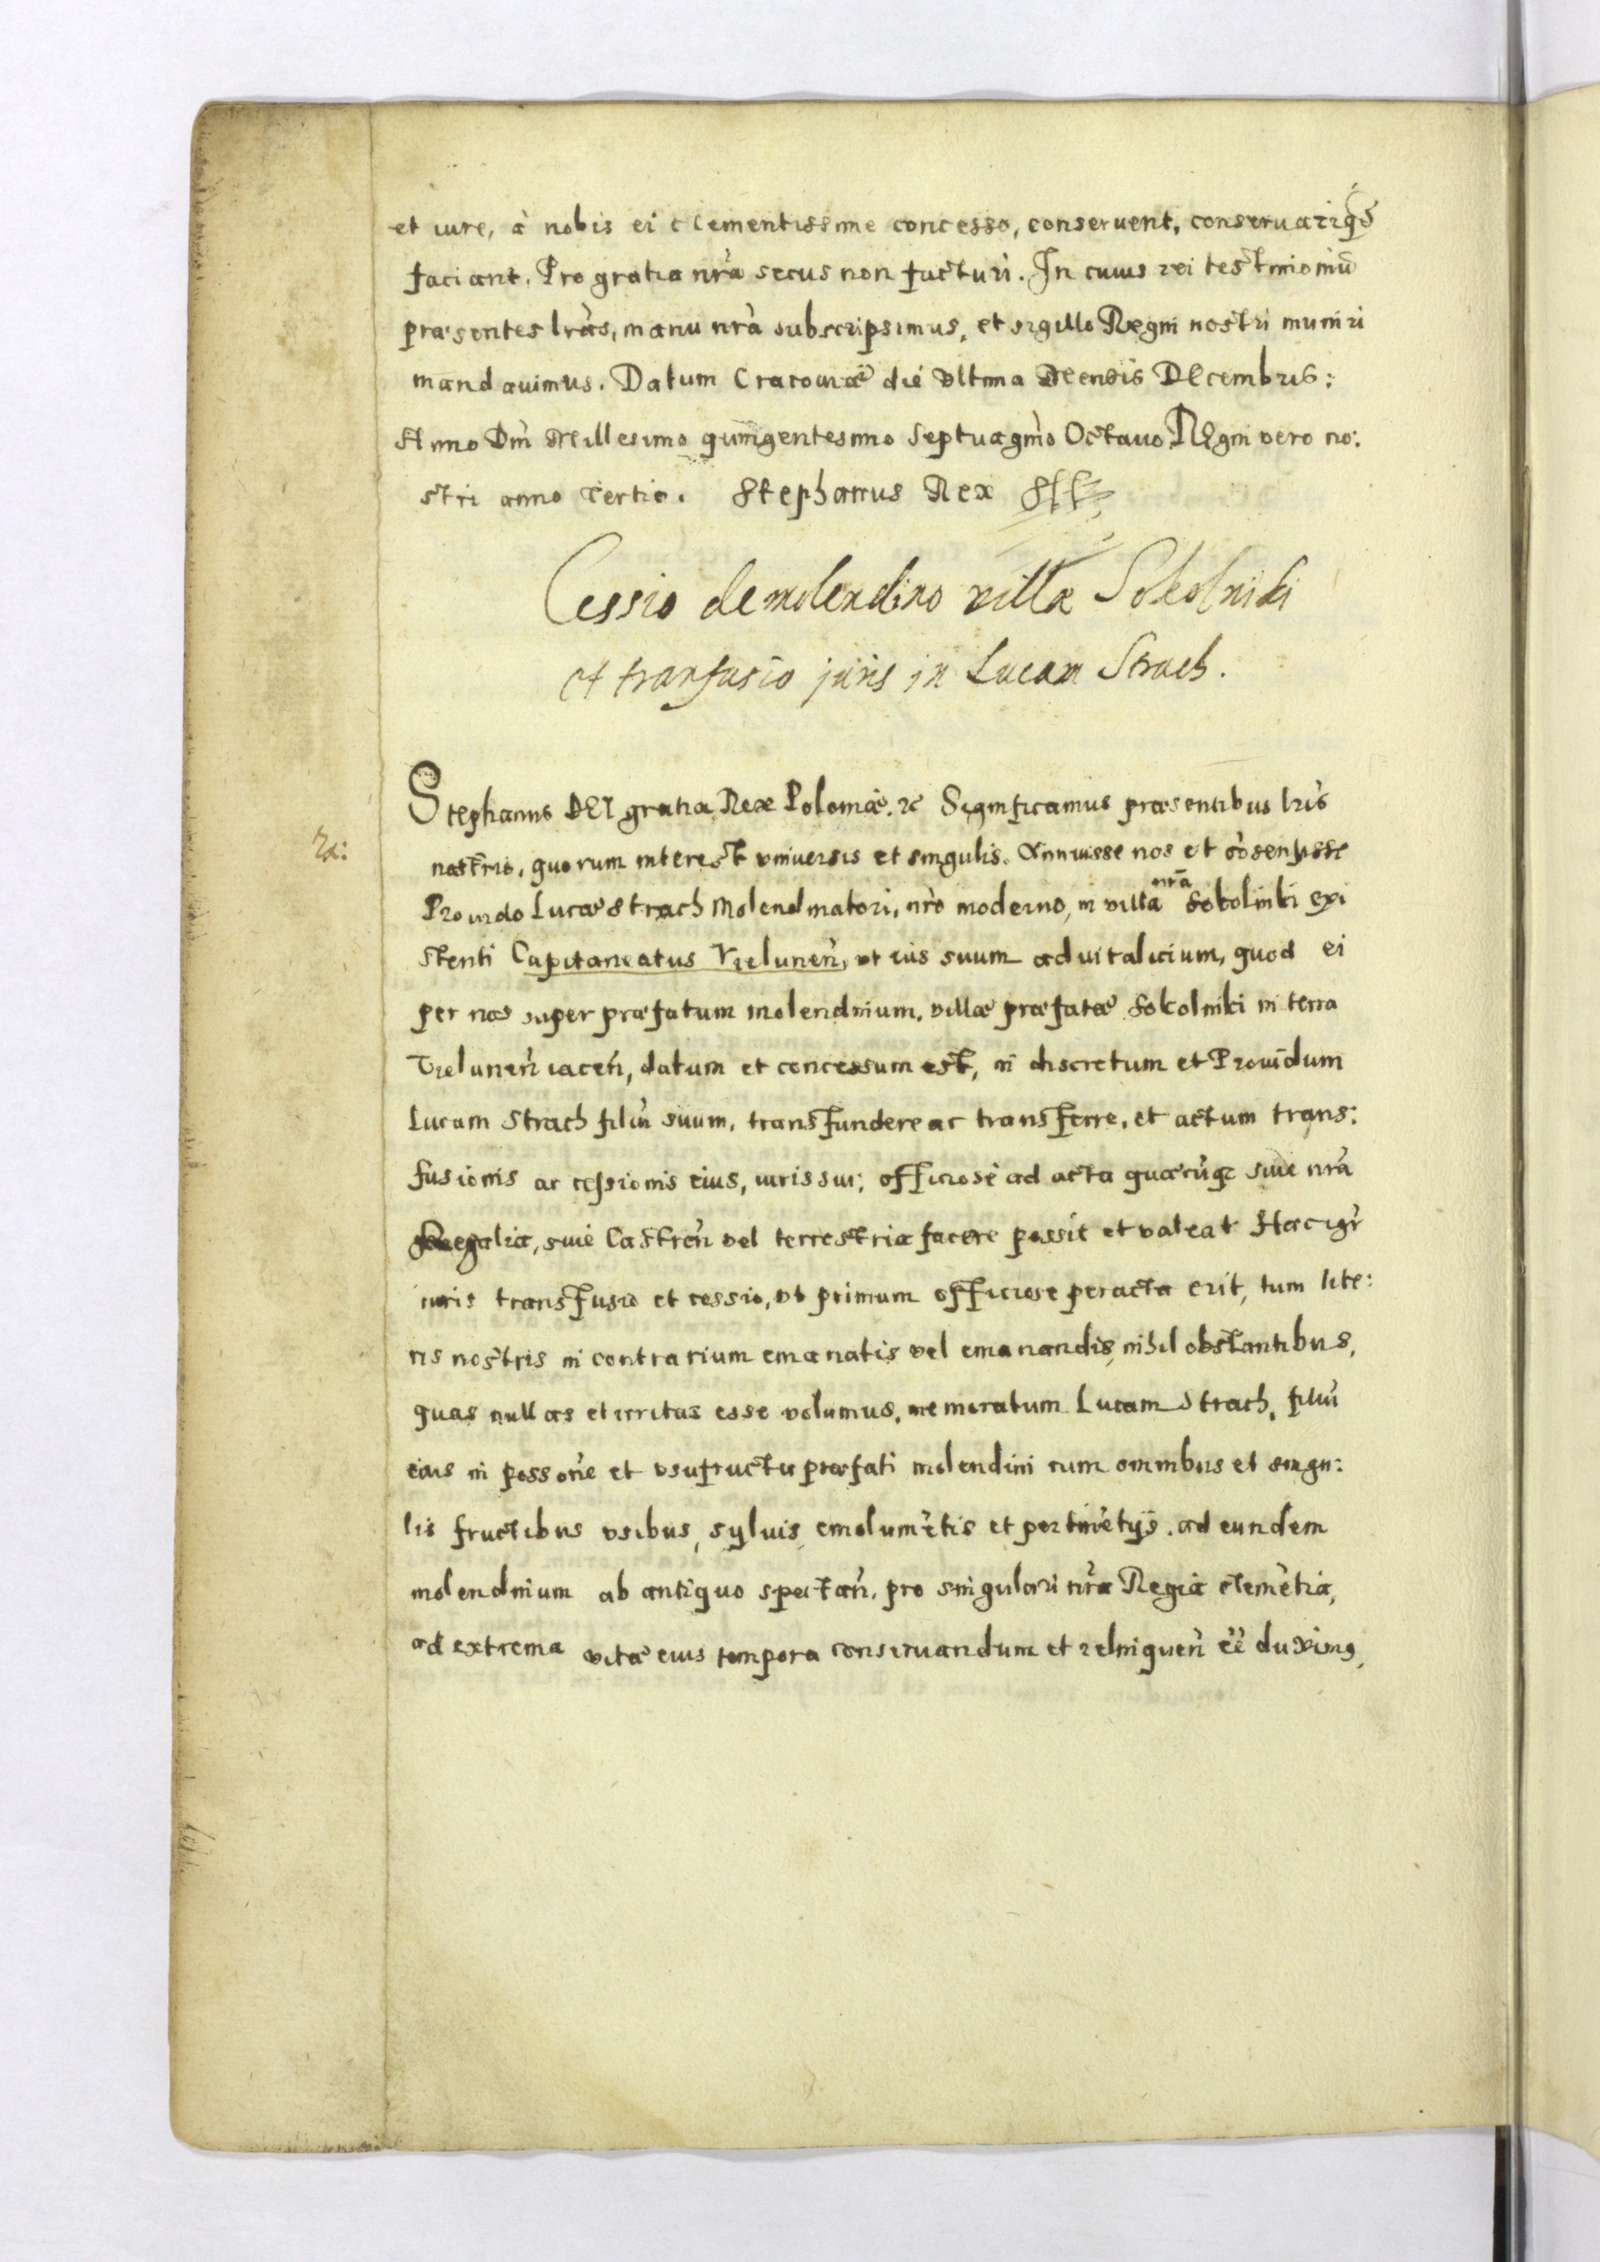 et iure, à nobis ei clementissime concesso, conseruent, conseruariq꞉
faciant. Pro gratia nrã secus non facturi. In cuius rei testimoniũ
præsentes lrãs, manu nrã subscripsimus, et sigillo Regni nostri muniri
mandauimus. Datum Cracouiæ die vltima Mensis DEcembris:
Anno Dñi Millesimo quingentesimo Septuagm̃o Octauo REgni vero no:
stri anno tertio. Stephanus Rex
Cessio de molendino villæ Sokolniki
et tranfusio juris in Lucam Strach.
Stephanus DEI gratia Rex Poloniæ. &c Significamus præsentibus lrĩs
nostris, quorum interest vniuersis et singulis. Annuisse nos et cõsensisse
nrã
Prouido Lucæ Strach Molendinatori, nrõ moderno, in villa Sokolniki exi
stenti Capitaneatus Vielunen̄, vt ius suum aduitalicium, quod ei
per nos super præfatum molendinum, villæ præfatæ Sokolniki in terra
Vielunen̄ iacen̄, datum et concessum est, in discretum et Prouidum
Lucam Strach filiũ suum, transfundere ac transferre, et actum trans:
fusionis ac cessionis eius, iuris sui; officiose ad acta quæcũq꞉ siue nrã
Regalia, siue Castren̄ vel terrestria facere possit et valeat Hæc igr̃
iuris transfusio et cessio, vb primum officiose peracta erit, tum lite:
ris nostris in contrarium emanatis vel emanandis, nihil obstantibus,
quas nullas et irritas esse volumus, memoratum Lucam Strach, filiũ
eius in possoñe et vsufructu præfati molendini cum omnibus et singu:
lis fructibus vsibus, syluis, emolumẽtis et pertinẽtijs. ad eundem
molendinum ab antiquo spectan̄. pro singulari nrã Regia clemẽtia,
ad extrema vitæ eius tempora conseruandum et relinquen̄ eẽ duximꝰ,